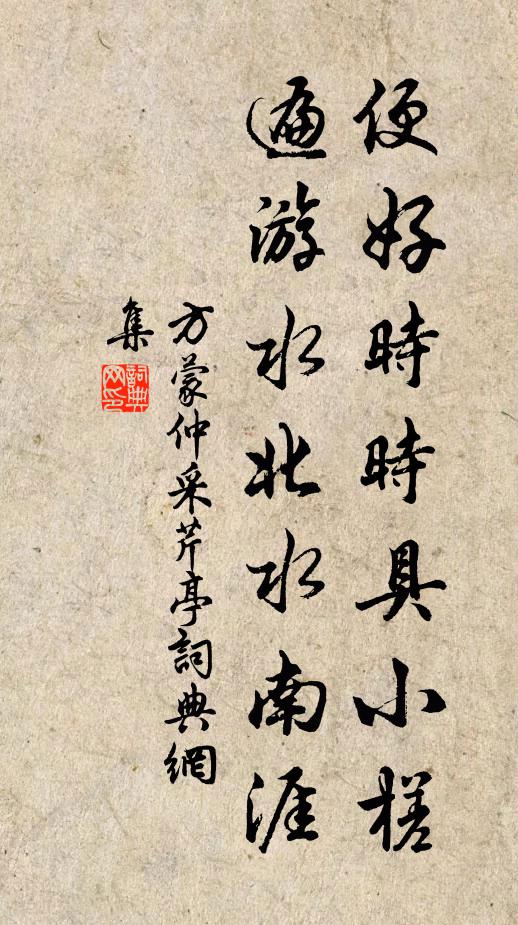 便好時時具小槎
遍游水北水南涯
方蒙仲采芹亭詞典網
集
詞典網印